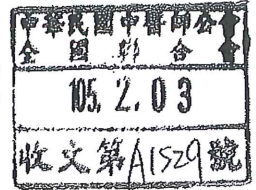 中華民國中醫師公會
全國聯合會
105. 2. 0 3
收文第A1529號